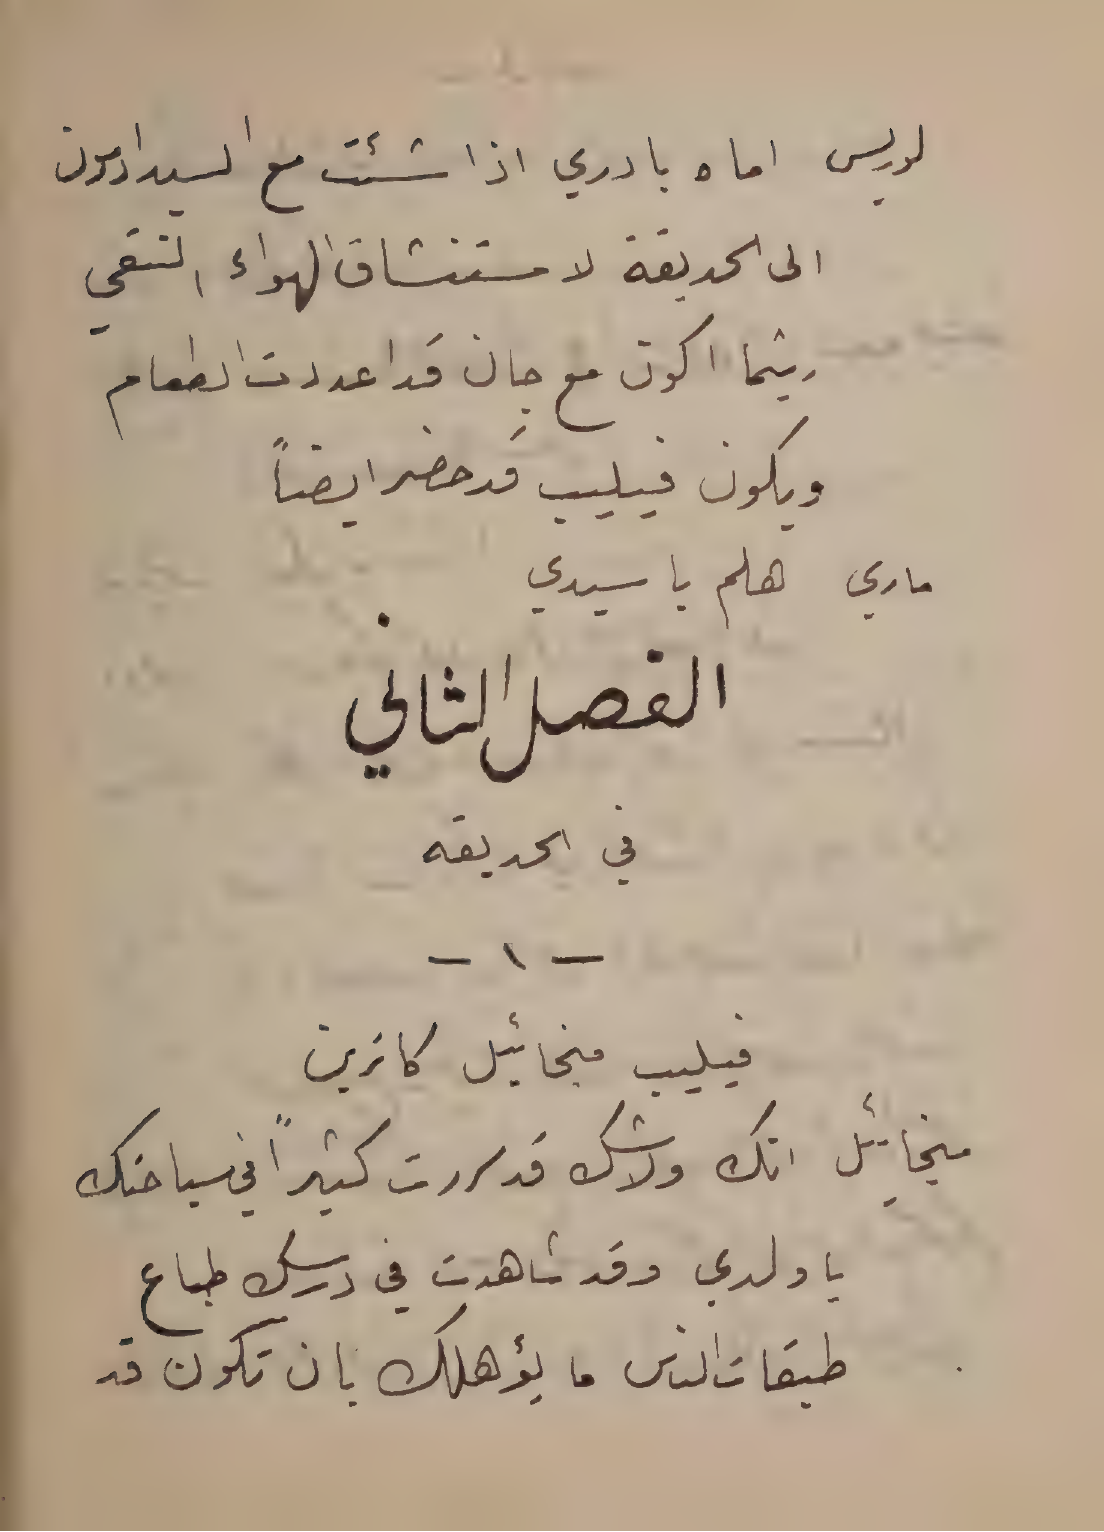 لوريس اماه بادري اذا شئت مع السيد ادمون
الى الحديقة لاستنشاق الهواء النقي
ريثما اكون مع جان قد اعددت الطعام
ويكون فيليب قد حضر ايضاً
ماري هلم يا سيدي
الفصل الثاني
في الحديقه
— ١ —
فيليب ميخائيل كاترين
ميخائيل انك ولاشك قد سررت كثيراً في سياحتك
يا ولدي وقد شاهدت في درسك طباع
طبقات الناس ما يؤهلك بان تكون قد